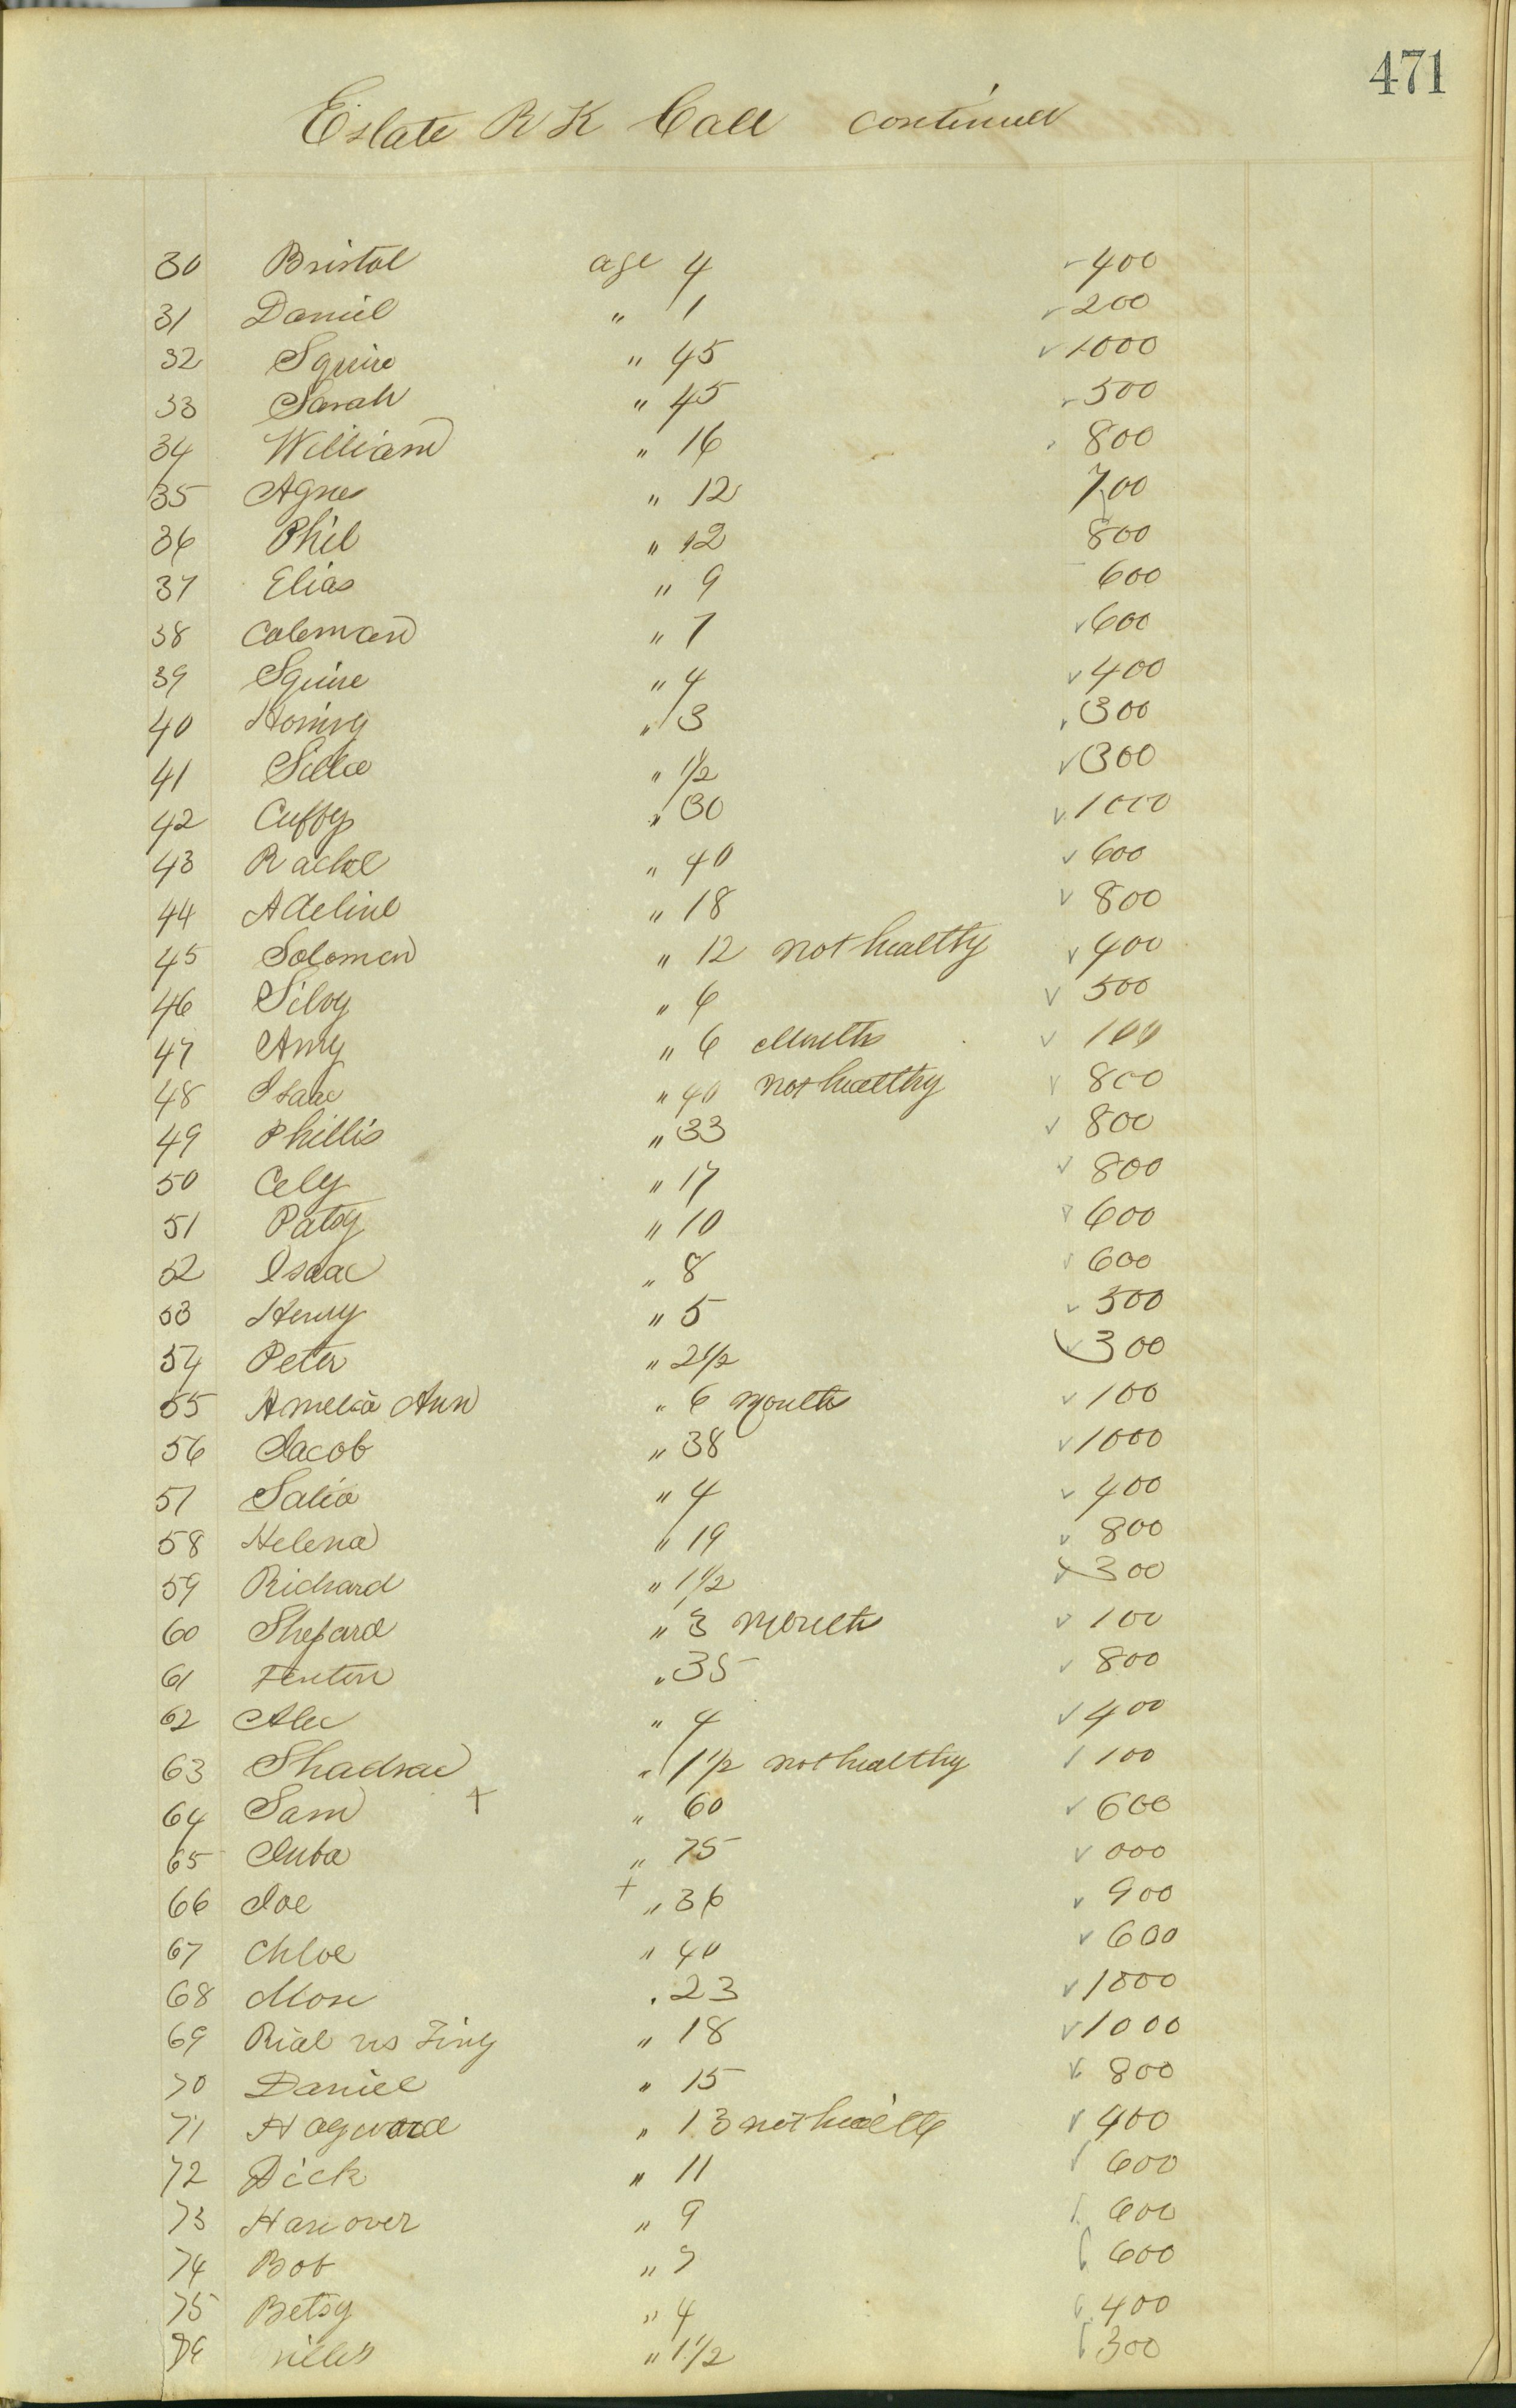 471
Estate R K Call continued
30 Bristol age 4 400
31 Daniel " 1 200
32 Squire " 45 1000
33 Sarah " 45 500
34 William " 16 800
35 Agnes " 12 700
36 Phil " 12 800
37 Elias " 9 600
38 Coleman " 7 600
39 Squire " 4 400
40 " 3 300
41 " 1/2 300
42 Cuffy " 30 1000
43 Rachel " 40 600
44 Adeline " 18 800
45 Solomon " 12 not healthy 400
46 Silvy " 6 500
47 Amy " 6 Months 100
48 Isaac " 40 not healthy 800
49 Phillis " 33 800
50 Cely " 17 800
51 Patsy " 10 600
52 Isaac " 8 600
53 Henry " 5 500
54 Peter " 2 1/2 300
55 Amelia Ann " 6 months 100
56 Jacob " 38 1000
57 " 4 400
58 Helena " 19 800
59 Richard " 1 1/2 300
60 Shepard " 3 Months 100
61 Fenton " 35 800
62 Alec " 4 400
63 Shadrac " 1 1/2 not healthy 100
64 Sam + " 60 600
65 Juba " 75 000
66 Joe + " 36 900
67 Chloe " 40 600
68 Mose " 23 1000
69 " 18 1000
70 Daniel " 15 800
71 Hayward " 13 not healthy 400
72 Dick " 11 600
73 Hanover " 9 600
74 Bob " 7 600
75 Betsy " 4 400
76 " 1 1/2 300